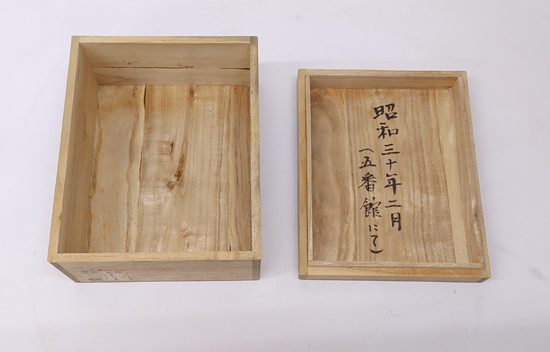 昭和三十年二月
（五番館にて）